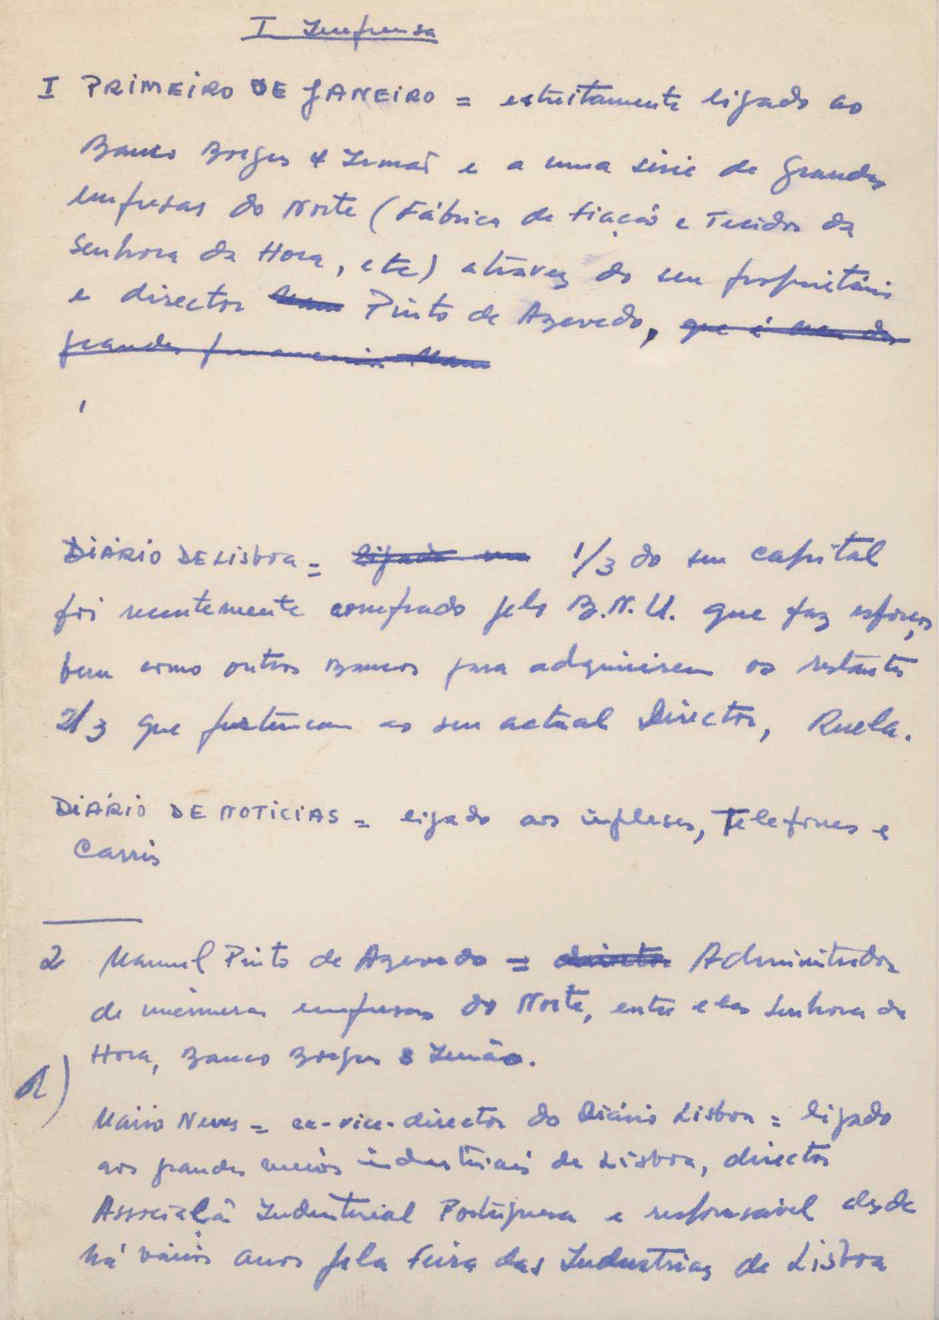 I Imprensa
I PRIMEIRO DE JANEIRO = estritamente ligado ao
Banco Borges & Irmão e a uma série de grandes
empresas do Norte (Fábrica de Fiação e Tecidos da
Senhora da Hora, etc) através do seu proprietário
e director Pinto de Azevedo, que é um dos
grandes
DIÁRIO DE LISBOA = ligado 1/3 do seu capital
foi recentemente comprado pelo B.N.U. que faz esforços,
bem como outros Bancos para adquirirem os restantes
2/3 que pertencem ao seu actual Director, Ruela.
DIÁRIO DE NOTICIAS = ligado aos ingleses, Telefones e
Carris
2 Manuel Pinto de Azevedo = director Administrador
de inúmeras empresas do Norte, entre elas Senhora da
Hora, Banco Borges & Irmão.
1)
Mário Neves = ex-vice-director do Diário Lisboa = ligado
aos grandes meios industriais de Lisboa, director
Associação Industrial Portuguesa e responsável desde
há vários anos pela Feira das Industrias de Lisboa